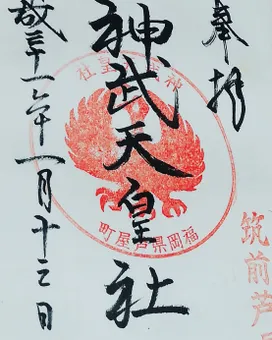 奉拝
神武天皇社
三十一年一月十三日
神武天皇社
福岡県芦屋町
筑前芦屋